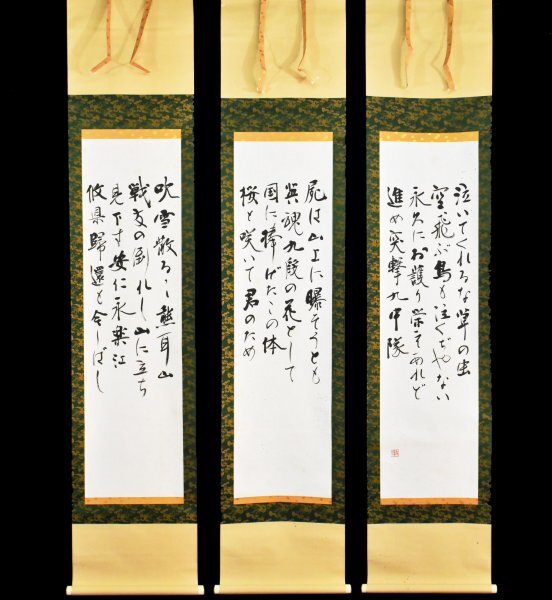 吹雪散るゝ熊耳山
戦友の倒れし山に立ち
見下す安仁永楽江
攸県歸還も今しばし
屍は山上に曝そうとも
英魂九段の花として
国に捧げたこの体
桜と咲いて君のため
泣いてくれるな草の虫
空飛ぶ鳥も泣くぢゃない
永久にお護り栄えあれど
進め突撃九中隊